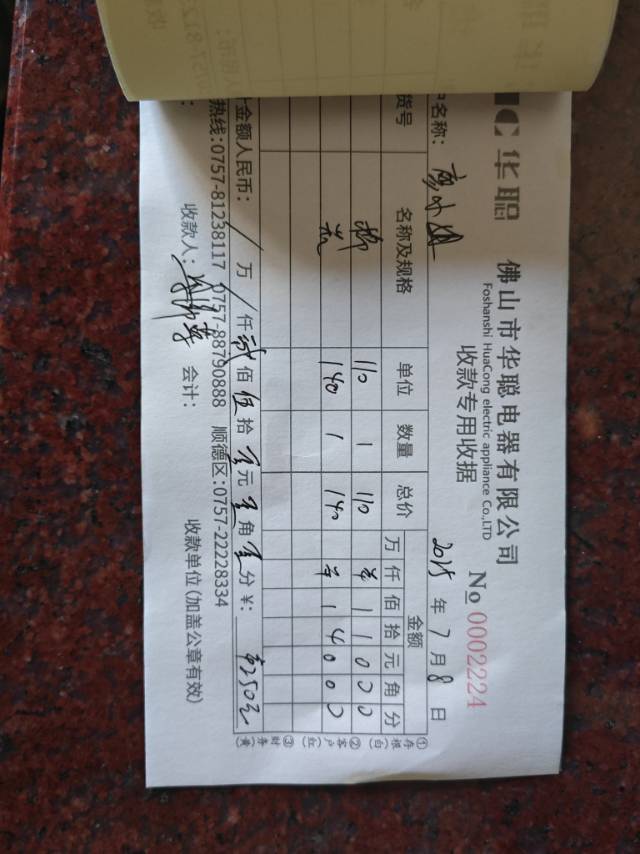 C 华聪 佛山市华聪电器有限公司
Foshanshi HuaCong electric appliance Co.,LTD
收款专用收据 No 0002224
户名称: 2015 年 7 月 8 日
货号 名称及规格 单位 数量 总价 金额
万 仟 佰 拾 元 角 分
110 1 110 ¥ 1 1 0 0 0
140 1 140 ¥ 1 4 0 0 0
金额人民币: / 万 / 仟 贰 佰 伍 拾 元 角 分 ¥: 250元
热线:0757-81238117 0757-88790888 顺德区:0757-22228334
收款人: 会计: 收款单位(加盖公章有效)
①存根(白) ②客户(红) ③财务(黄)